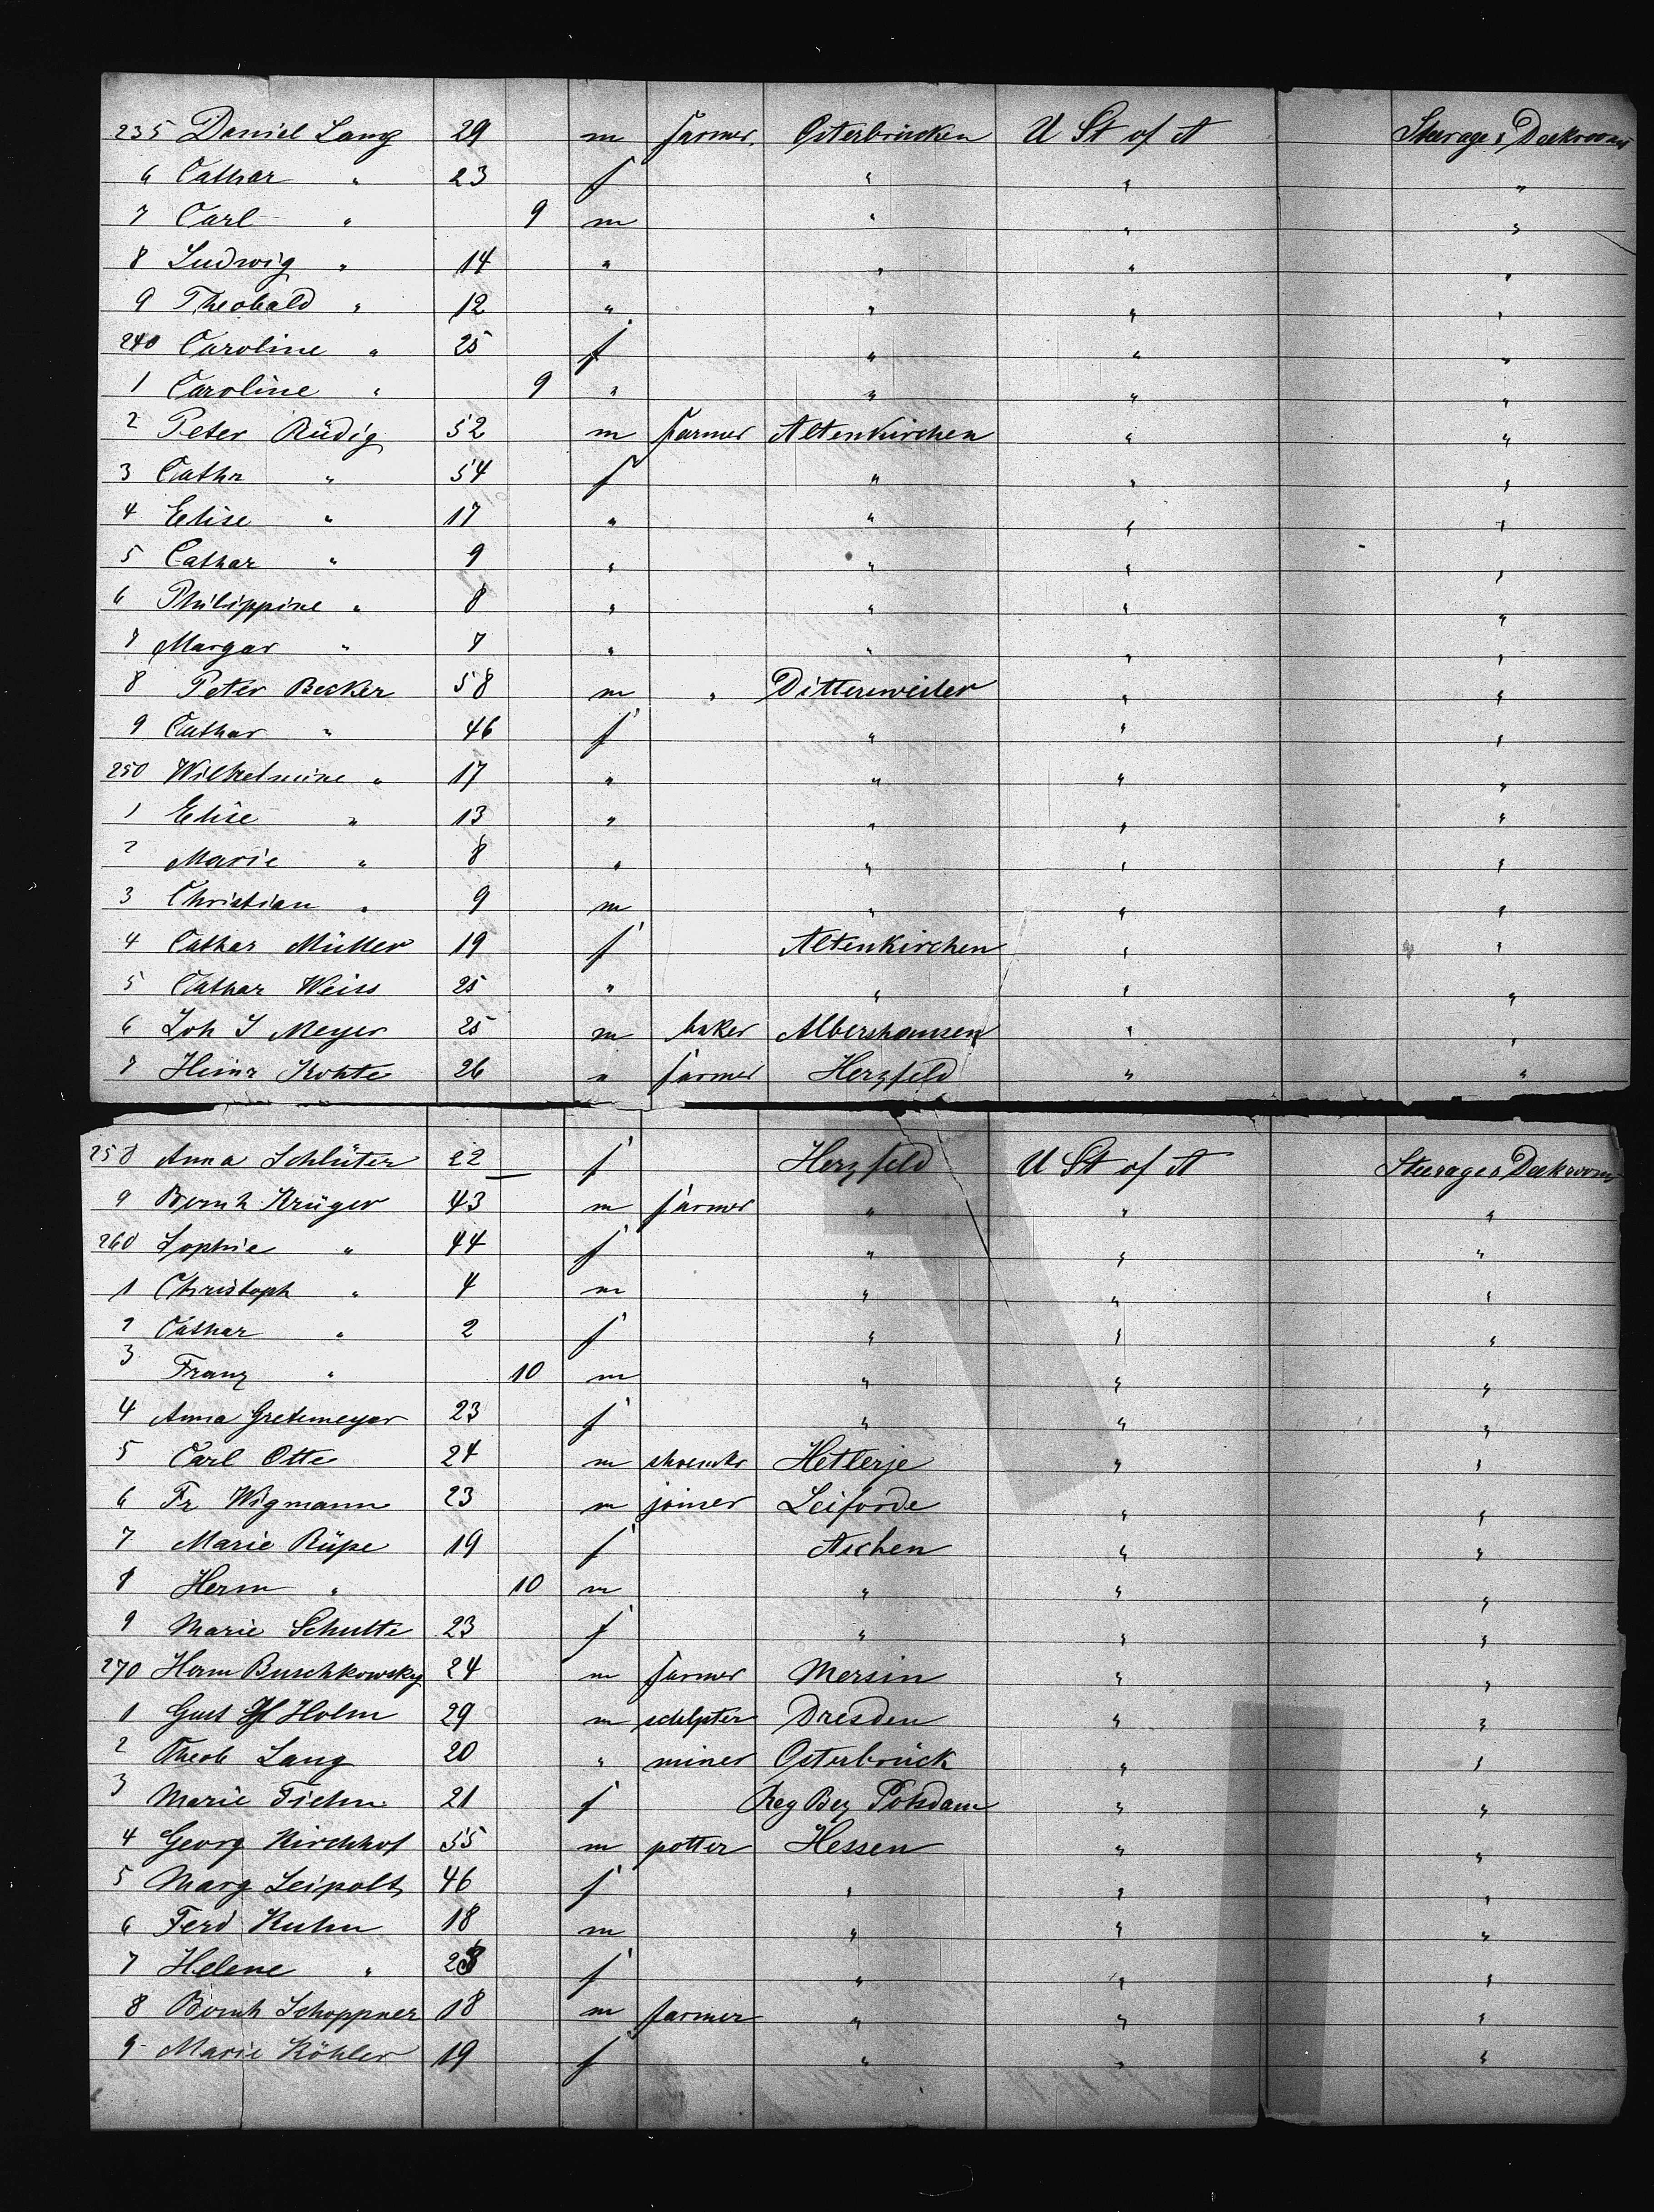 235 Daniel Lang 29 m farmer. Osterbrücken U St of A Steerage & Deckrooms
6 Cathar " 23 f " " "
7 Carl " 9 m " " "
8 Ludwig " 14 " " " "
9 Theobald " 12 " " " "
240 Caroline " 25 f " " "
1 Caroline " 9 " " " "
2 Peter Rüdig 52 m farmer Altenkirchen " "
3 Cathr " 54 f " " "
4 Elise " 17 " " " "
5 Cathar " 9 " " " "
6 Philippine " 8 " " " "
7 Margar " 7 " " " "
8 Peter Becker 58 m " Dittersweiler " "
9 Cathar " 46 f " " "
250 Wilhelmine " 17 " " " "
1 Elise " 13 " " " "
2 Marie " 8 " " " "
3 Christian " 9 m " " "
4 Cathar Müller 19 f Altenkirchen " "
5 Cathar Weiss 25 " " " "
6 Joh J Meyer 25 m baker Albershausen " "
7 Heinr Kohte 26 " farmer Herzfeld " "
258 Anna Schlüter 22 f Herzfeld U St of A Steerage & Deckrooms
9 Bernh Krüger 43 m farmer " " "
260 Sophie " 44 f " " "
1 Christoph " 4 m " " "
2 Cathar " 2 f " " "
3 Franz " 10 m " " "
4 Anna Gretemeyer 23 f " " "
5 Carl Otte 24 m shoemkr Hetlerje " "
6 Fr Wigmann 23 m joiner Leiforde " "
7 Marie Rüpe 19 f Aschen " "
8 Herm " 10 m " " "
9 Marie Schulte 23 f " " "
270 Herm Buschkowsky 24 m farmer Mersin " "
1 Gust Holm 29 m sculpter Dresden " "
2 Theob Lang 20 " miner Osterbrück " "
3 Marie Tiehm 21 f Reg Bez Potsdam " "
4 Georg Kirchhof 55 m potter Hessen " "
5 Marg Leipolt 46 f " " "
6 Ferd Kuhn 18 m " " "
7 Helene " f " " "
8 Bernh Schoppner 18 m farmer " " "
9 Marie Köhler 19 f " " "